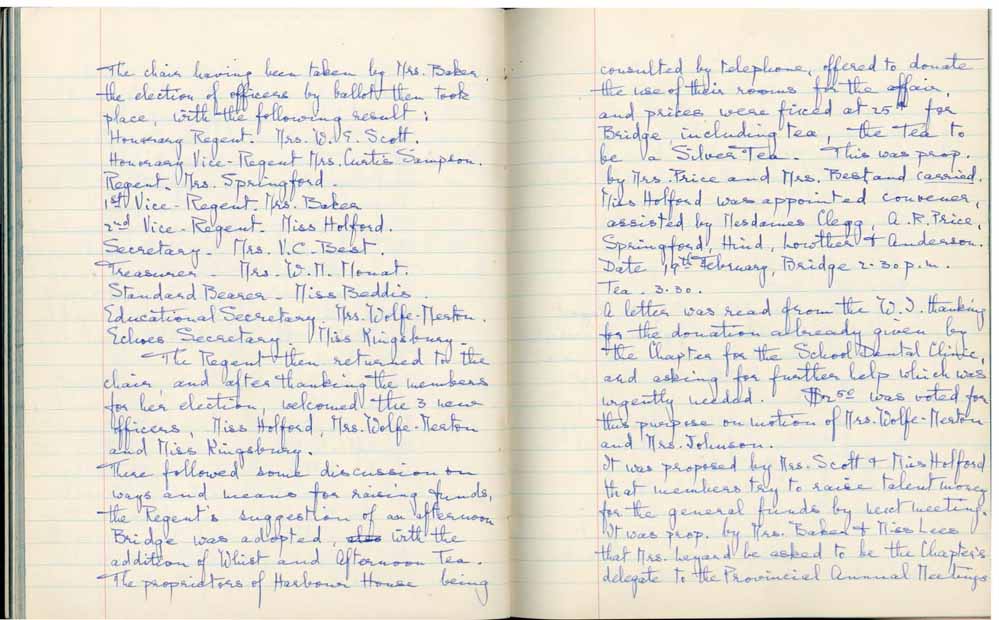 The chair having been taken by Mrs. Baker,
the election of officers by ballot then took
place, with the following result:
Honorary Regent. Mrs. W. E. Scott.
Honorary Vice-Regent Mrs. Curtis Sampson.
Regent. Mrs. Springford.
1st Vice-Regent. Mrs. Baker
2nd Vice-Regent. Miss Holford.
Secretary - Mrs. V.C. Best.
Treasurer - Mrs. W. M. Mouat.
Standard Bearer - Miss Beddis.
Educational Secretary. Mrs. Wolfe-Merton.
Echoes Secretary. Miss Kingsbury.
The Regent then returned to the
chair, and after thanking the members
for her election, welcomed the 3 new
officers, Miss Holford, Mrs. Wolfe-Merton
and Miss Kingsbury.
There followed some discussion on
ways and means for raising funds,
the Regent's suggestion of an afternoon
Bridge was adopted, also with the
addition of Whist and Afternoon Tea.
The proprietors of Harbour House being
consulted by telephone, offered to donate
the use of their rooms for the affair,
and prices were fixed at 25¢ for
Bridge including tea, the Tea to
be a Silver Tea. This was prop.
by Mrs. Price and Mrs. Best and carried.
Miss Holford was appointed convener,
assisted by Mesdames Clegg, A.R. Price,
Springford, Hind, Lowther & Anderson.
Date 19th February, Bridge 2.30 p.m.
Tea. 3.30.
A letter was read from the W.I. thanking
for the donation already given by
the Chapter for the School Dental Clinic,
and asking for further help which was
urgently needed. $2.50 was voted for
this purpose on motion of Mrs. Wolfe-Merton
and Mrs. Johnson.
It was proposed by Mrs. Scott & Miss Holford
that members try to raise talent money
for the general funds by next meeting.
It was prop. by Mrs. Baker & Miss Lees
that Mrs. Layard be asked to be the Chapter's
delegate to the Provincial Annual Meetings